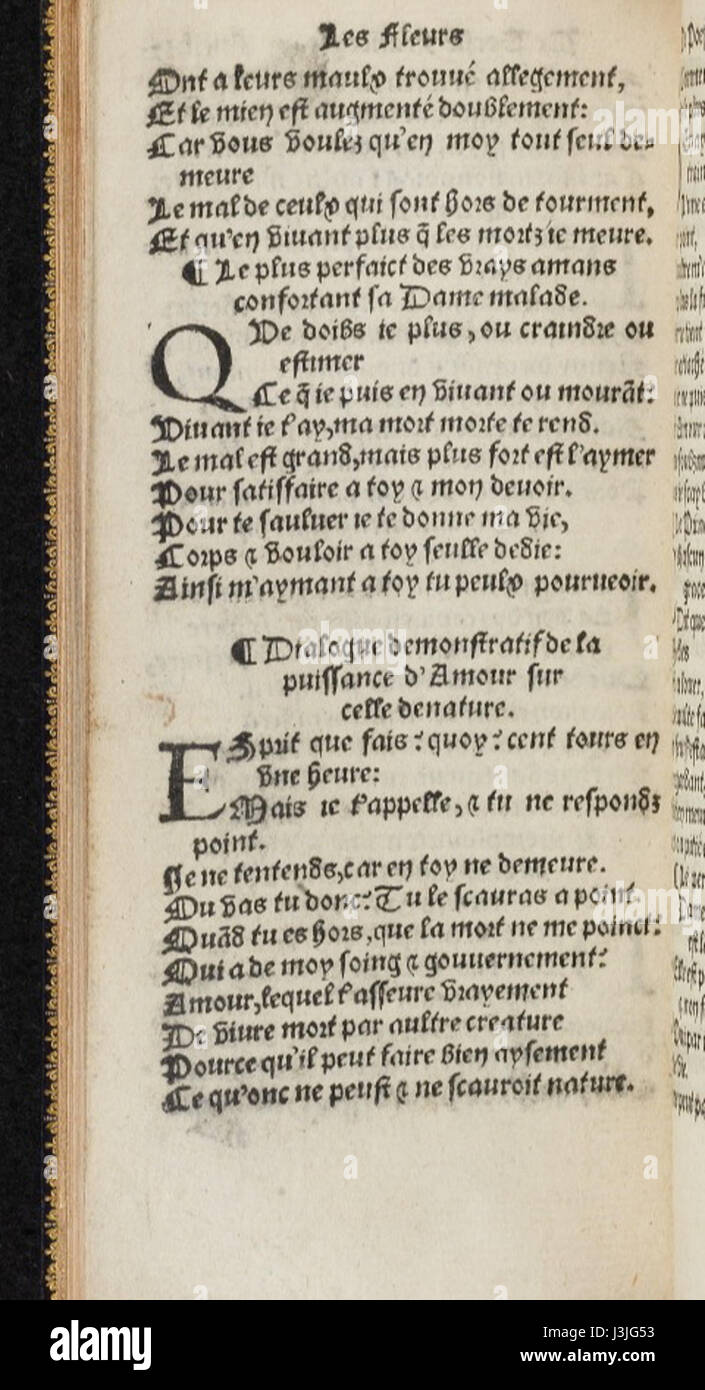 Les Fleurs
Ont a leurs maulx trouué allegement,
Et le mien est augmenté doublement:
Car vous voulez qu'en moy tout seul de-
meure
Le mal de ceulx qui sont hors de tourment,
Et qu'en viuant plus q̃ les mortz ie meure.
¶ Le plus perfaict des vrays amans
confortant sa Dame malade.
QVe doibs ie plus, ou craindre ou
estimer
Ce q̃ ie puis en viuant ou mourãt:
Viuant ie t'ay, ma mort morte te rend.
Le mal est grand, mais plus fort est l'aymer
Pour satisfaire a toy & mon deuoir.
Pour te sauluer ie te donne ma vie,
Corps & vouloir a toy seulle dedie:
Ainsi m'aymant a toy tu peulx pourueoir.
¶ Dialogue demonstratif de la
puissance d'Amour sur
celle de nature.
ESprit que fais? quoy? cent tours en
vne heure:
Mais ie t'appelle, & tu ne respondz
point.
Je ne tentends, car en toy ne demeure.
Ou vas tu donc? Tu le scauras a point
Quãd tu es hors, que la mort ne me poinct?
Qui a de moy soing & gouuernement?
Amour, lequel t'asseure vrayement
De viure mort par aultre creature
Pource qu'il peut faire bien aysement
Ce qu'onc ne peust & ne scauroit nature.
alamy
Image ID: J3JG53
www.alamy.com